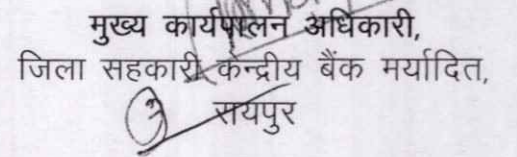 मुख्य कार्यपालन अधिकारी,
जिला सहकारी केन्द्रीय बैंक मर्यादित,
रायपुर